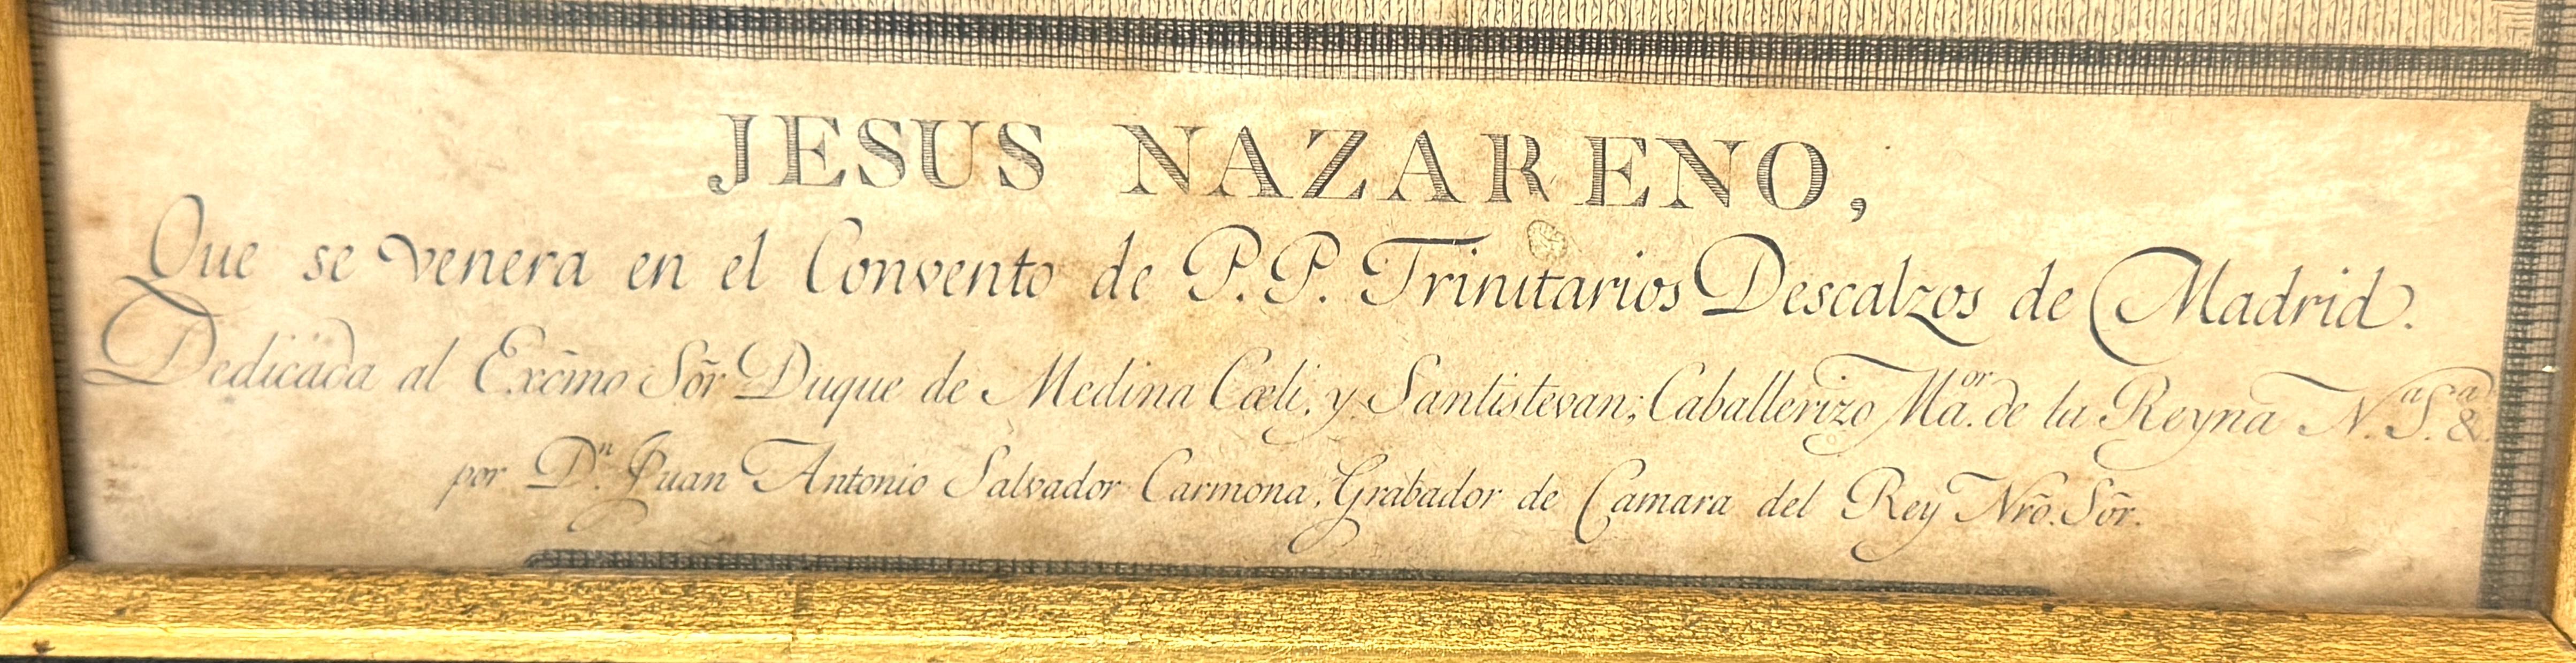 JESUS NAZARENO,
Que se venera en el Convento de P.P. Trinitarios Descalzos de Madrid.
Dedicada al Excm̃o Sõr Duque de Medina Cœli, y Santistevan; Caballerizo Ma.ᵒʳ de la Reyna N.ᵃ S.ᵃ &.
por D.ⁿ Juan Antonio Salvador Carmona, Grabador de Camara del Rey Nrõ. Sõr.